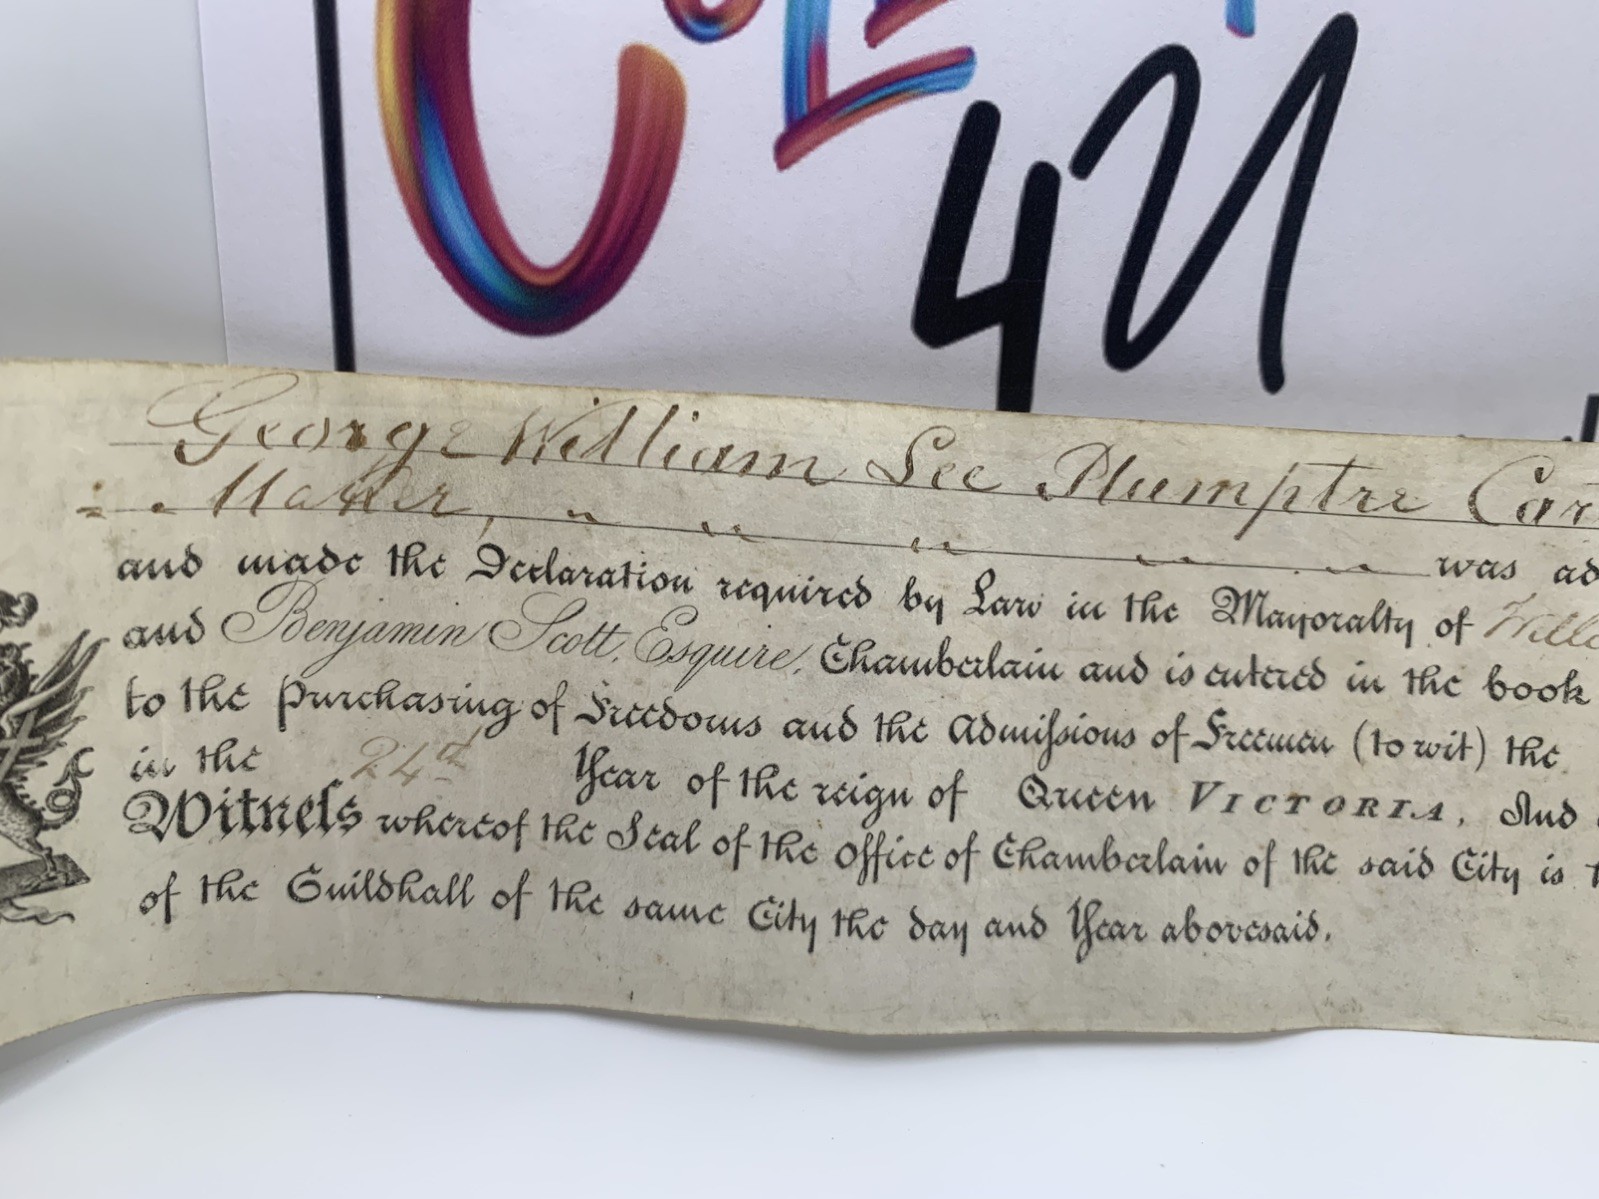 4U
George William Lee Plumptre Car
Maker,
was ad
and made the Declaration required by Law in the Mayoralty of Will
and Benjamin Scott, Esquire, Chamberlain and is entered in the book
to the Purchasing of Freedoms and the Admiſsions of Freemen (to wit) the
in the 24th Year of the reign of Queen VICTORIA, And
Witneſs whereof the Seal of the Office of Chamberlain of the said City is
of the Guildhall of the same City the day and Year abovesaid.